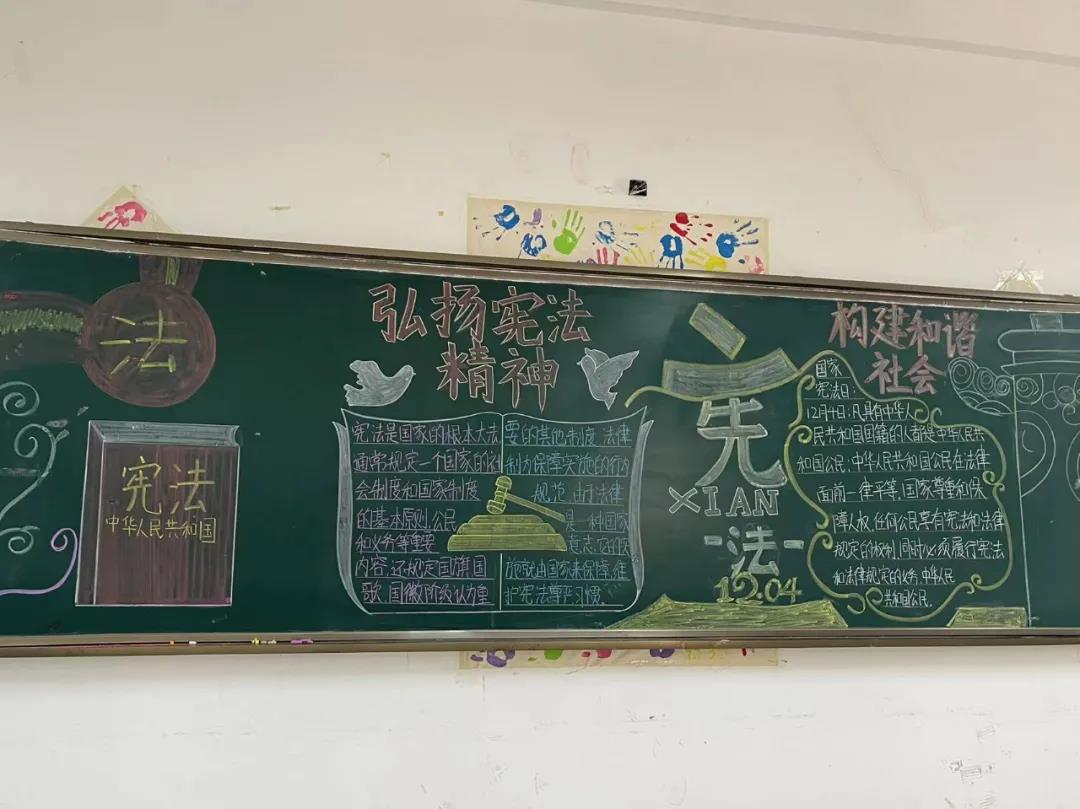 法
宪法
中华人民共和国
弘扬宪法
精神
宪法是国家的根本大法,
通常规定一个国家的社
会制度和国家制度
的基本原则,公民
和义务等重要
内容,还规定国旗,国
歌、国徽阶级认为重
要的其他制度,法律
制为保障实施的行为
规范,由于法律
是一种国家
意志,它的实
施就由国家来保障,维
护宪法尊严习惯.
宪
XIAN
-法-
12.04
构建和谐
社会
国家
宪法日:
12月4日:凡具有中华人
民共和国国籍的人都是中华人民共
和国公民;中华人民共和国公民在法律
面前一律平等,国家尊重和保
障人权,任何公民享有宪法和法律
规定的权利,同时必须履行宪法
和法律规定的义务,中华人民
共和国公民.